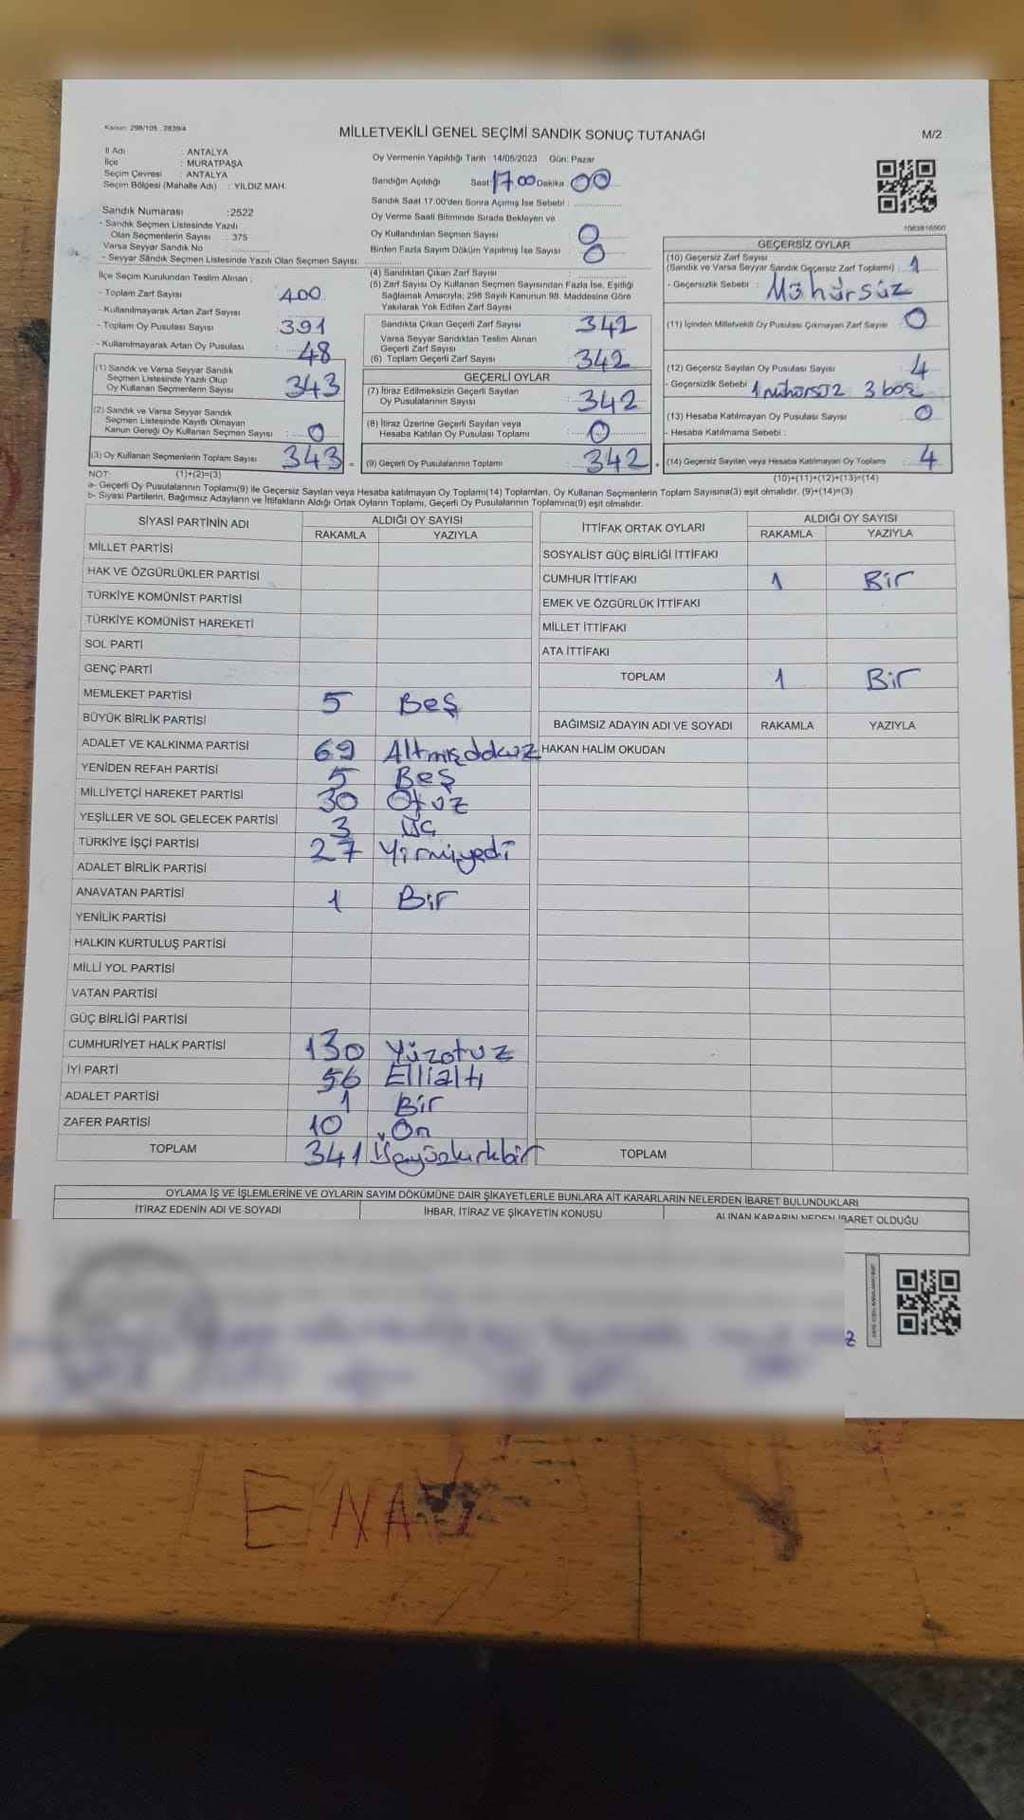 Kanun: 298/105 , 2839/4
MİLLETVEKİLİ GENEL SEÇİMİ SANDIK SONUÇ TUTANAĞI
M/2
İl Adı : ANTALYA
İlçe : MURATPAŞA
Seçim Çevresi : ANTALYA
Seçim Bölgesi (Mahalle Adı) : YILDIZ MAH.
Oy Vermenin Yapıldığı Tarih : 14/05/2023 Gün: Pazar
Sandığın Açıldığı Saat: 17 00 Dakika 00
Sandık Saat 17.00'den Sonra Açılmış İse Sebebi :
Oy Verme Saati Bitiminde Sırada Bekleyen ve
Oy Kullandırılan Seçmen Sayısı : 0
Birden Fazla Sayım Döküm Yapılmış İse Sayısı : 0
Sandık Numarası :2522
- Sandık Seçmen Listesinde Yazılı
Olan Seçmenlerin Sayısı : 375
Varsa Seyyar Sandık No
- Seyyar Sandık Seçmen Listesinde Yazılı Olan Seçmen Sayısı:
İlçe Seçim Kurulundan Teslim Alınan :
- Toplam Zarf Sayısı 400
- Kullanılmayarak Artan Zarf Sayısı :
- Toplam Oy Pusulası Sayısı : 391
- Kullanılmayarak Artan Oy Pusulası : 48
(1) Sandık ve Varsa Seyyar Sandık
Seçmen Listesinde Yazılı Olup
Oy Kullanan Seçmenlerin Sayısı : 343
(2) Sandık ve Varsa Seyyar Sandık
Seçmen Listesinde Kayıtlı Olmayan
Kanun Gereği Oy Kullanan Seçmen Sayısı : 0
(3) Oy Kullanan Seçmenlerin Toplam Sayısı : 343
(4) Sandıktan Çıkan Zarf Sayısı :
(5) Zarf Sayısı Oy Kullanan Seçmen Sayısından Fazla İse, Eşitliği
Sağlamak Amacıyla; 298 Sayılı Kanunun 98. Maddesine Göre
Yakılarak Yok Edilen Zarf Sayısı :
Sandıkta Çıkan Geçerli Zarf Sayısı : 342
Varsa Seyyar Sandıktan Teslim Alınan
Geçerli Zarf Sayısı
(6) Toplam Geçerli Zarf Sayısı : 342
GEÇERLİ OYLAR
(7) İtiraz Edilmeksizin Geçerli Sayılan
Oy Pusulalarının Sayısı : 342
(8) İtiraz Üzerine Geçerli Sayılan veya
Hesaba Katılan Oy Pusulası Toplamı : 0
(9) Geçerli Oy Pusulalarının Toplamı : 342
GEÇERSİZ OYLAR
(10) Geçersiz Zarf Sayısı
(Sandık ve Varsa Seyyar Sandık Geçersiz Zarf Toplamı) : 1
- Geçersizlik Sebebi : Mühürsüz
(11) İçinden Milletvekili Oy Pusulası Çıkmayan Zarf Sayısı : 0
(12) Geçersiz Sayılan Oy Pusulası Sayısı : 4
- Geçersizlik Sebebi : 1 mühürsüz 3 boş
(13) Hesaba Katılmayan Oy Pusulası Sayısı : 0
- Hesaba Katılmama Sebebi :
(14) Geçersiz Sayılan veya Hesaba Katılmayan Oy Toplamı : 4
NOT: (1)+(2)=(3)
(10)+(11)+(12)+(13)=(14)
a- Geçerli Oy Pusulalarının Toplamı(9) ile Geçersiz Sayılan veya Hesaba katılmayan Oy Toplamı(14) Toplamları, Oy Kullanan Seçmenlerin Toplam Sayısına(3) eşit olmalıdır. (9)+(14)=(3)
b- Siyasi Partilerin, Bağımsız Adayların ve İttifakların Aldığı Ortak Oyların Toplamı, Geçerli Oy Pusulalarının Toplamına(9) eşit olmalıdır.
SİYASİ PARTİNİN ADI ALDIĞI OY SAYISI
RAKAMLA YAZIYLA
MİLLET PARTİSİ
HAK VE ÖZGÜRLÜKLER PARTİSİ
TÜRKİYE KOMÜNİST PARTİSİ
TÜRKİYE KOMÜNİST HAREKETİ
SOL PARTİ
GENÇ PARTİ
MEMLEKET PARTİSİ 5 Beş
BÜYÜK BİRLİK PARTİSİ
ADALET VE KALKINMA PARTİSİ 69 Altmışdokuz
YENİDEN REFAH PARTİSİ 5 Beş
MİLLİYETÇİ HAREKET PARTİSİ 30 Otuz
YEŞİLLER VE SOL GELECEK PARTİSİ 3 Üç
TÜRKİYE İŞÇİ PARTİSİ 27 Yirmiyedi
ADALET BİRLİK PARTİSİ
ANAVATAN PARTİSİ 1 Bir
YENİLİK PARTİSİ
HALKIN KURTULUŞ PARTİSİ
MİLLİ YOL PARTİSİ
VATAN PARTİSİ
GÜÇ BİRLİĞİ PARTİSİ
CUMHURİYET HALK PARTİSİ 130 Yüzotuz
İYİ PARTİ 56 Ellialtı
ADALET PARTİSİ 1 Bir
ZAFER PARTİSİ 10 On
TOPLAM 341 Üçyüzkırkbir
İTTİFAK ORTAK OYLARI ALDIĞI OY SAYISI
RAKAMLA YAZIYLA
SOSYALİST GÜÇ BİRLİĞİ İTTİFAKI
CUMHUR İTTİFAKI 1 Bir
EMEK VE ÖZGÜRLÜK İTTİFAKI
MİLLET İTTİFAKI
ATA İTTİFAKI
TOPLAM 1 Bir
BAĞIMSIZ ADAYIN ADI VE SOYADI RAKAMLA YAZIYLA
HAKAN HALİM OKUDAN
TOPLAM
OYLAMA İŞ VE İŞLEMLERİNE VE OYLARIN SAYIM DÖKÜMÜNE DAİR ŞİKAYETLERLE BUNLARA AİT KARARLARIN NELERDEN İBARET BULUNDUKLARI
İTİRAZ EDENİN ADI VE SOYADI İHBAR, İTİRAZ VE ŞİKAYETİN KONUSU ALINAN KARARIN NEDEN İBARET OLDUĞU